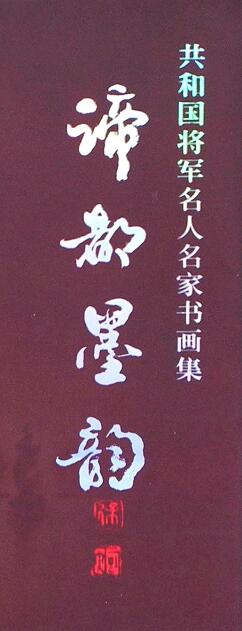 共和国将军名人名家书画集
谛都墨韵